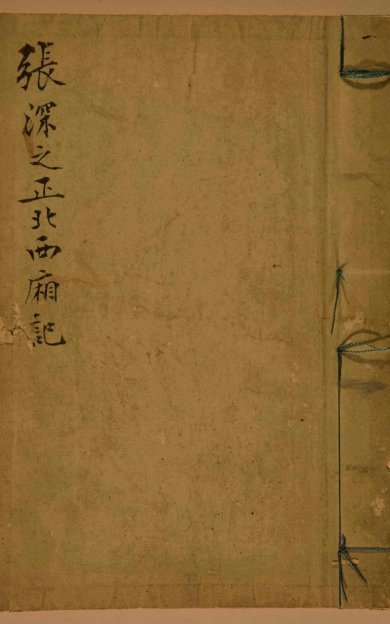 張深之正北西廂記
一